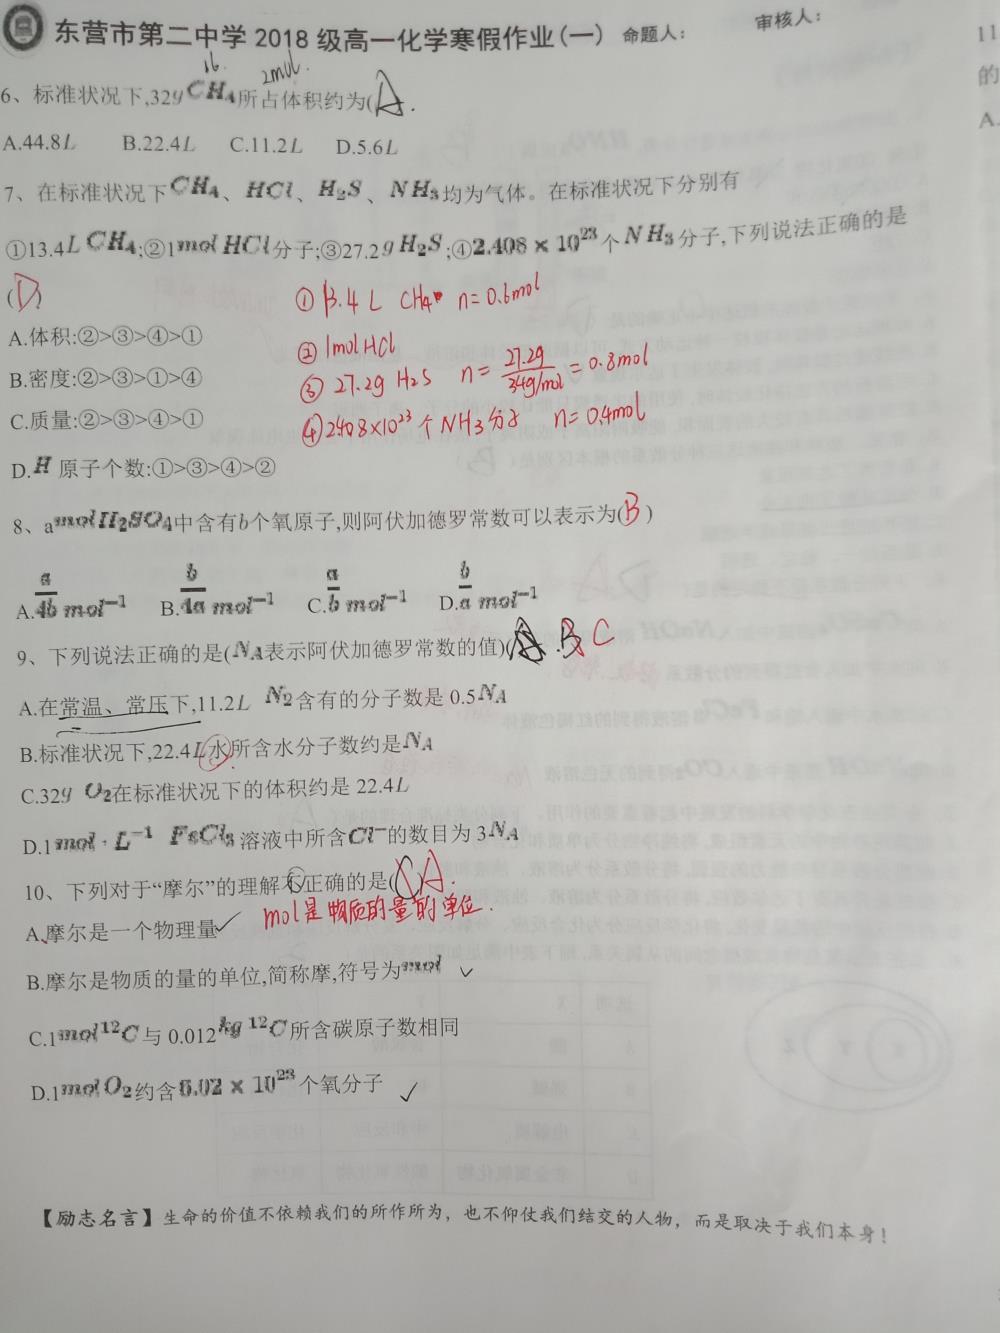 东营市第二中学 2018 级高一化学寒假作业(一) 命题人： 审核人：
16. 2mol.
6、标准状况下,32g CH4所占体积约为(A.
A.44.8L B.22.4L C.11.2L D.5.6L
7、在标准状况下CH4、HCl、H2S、NH3均为气体。在标准状况下分别有
①13.4L CH4;②1mol HCl分子;③27.2g H2S;④2.408×10²³个NH3分子,下列说法正确的是
(D)
① 13.4 L CH4 n=0.6mol
A.体积:②>③>④>①
② 1mol HCl
B.密度:②>③>①>④
③ 27.2g H2S n= 27.2g/34g/mol =0.8mol
C.质量:②>③>④>①
④ 2408×10²³个NH3分子 n=0.4mol
D.H原子个数:①>③>④>②
8、amolH2SO4中含有b个氧原子,则阿伏加德罗常数可以表示为(B)
A.a/4b mol⁻¹ B.b/4a mol⁻¹ C.a/b mol⁻¹ D.b/a mol⁻¹
9、下列说法正确的是(NA表示阿伏加德罗常数的值)( B C
A.在常温、常压下,11.2L N2含有的分子数是 0.5NA
B.标准状况下,22.4L水所含水分子数约是NA
C.32g O2在标准状况下的体积约是 22.4L
D.1mol·L⁻¹ FeCl3溶液中所含Cl⁻的数目为 3NA
10、下列对于“摩尔”的理解不正确的是(C)A.
mol是物质的量的单位.
A.摩尔是一个物理量✓
B.摩尔是物质的量的单位,简称摩,符号为mol ✓
C.1mol¹²C与 0.012kg ¹²C所含碳原子数相同
D.1molO2约含6.02×10²³个氧分子 ✓
【励志名言】生命的价值不依赖我们的所作所为，也不仰仗我们结交的人物，而是取决于我们本身！
11
的
A.